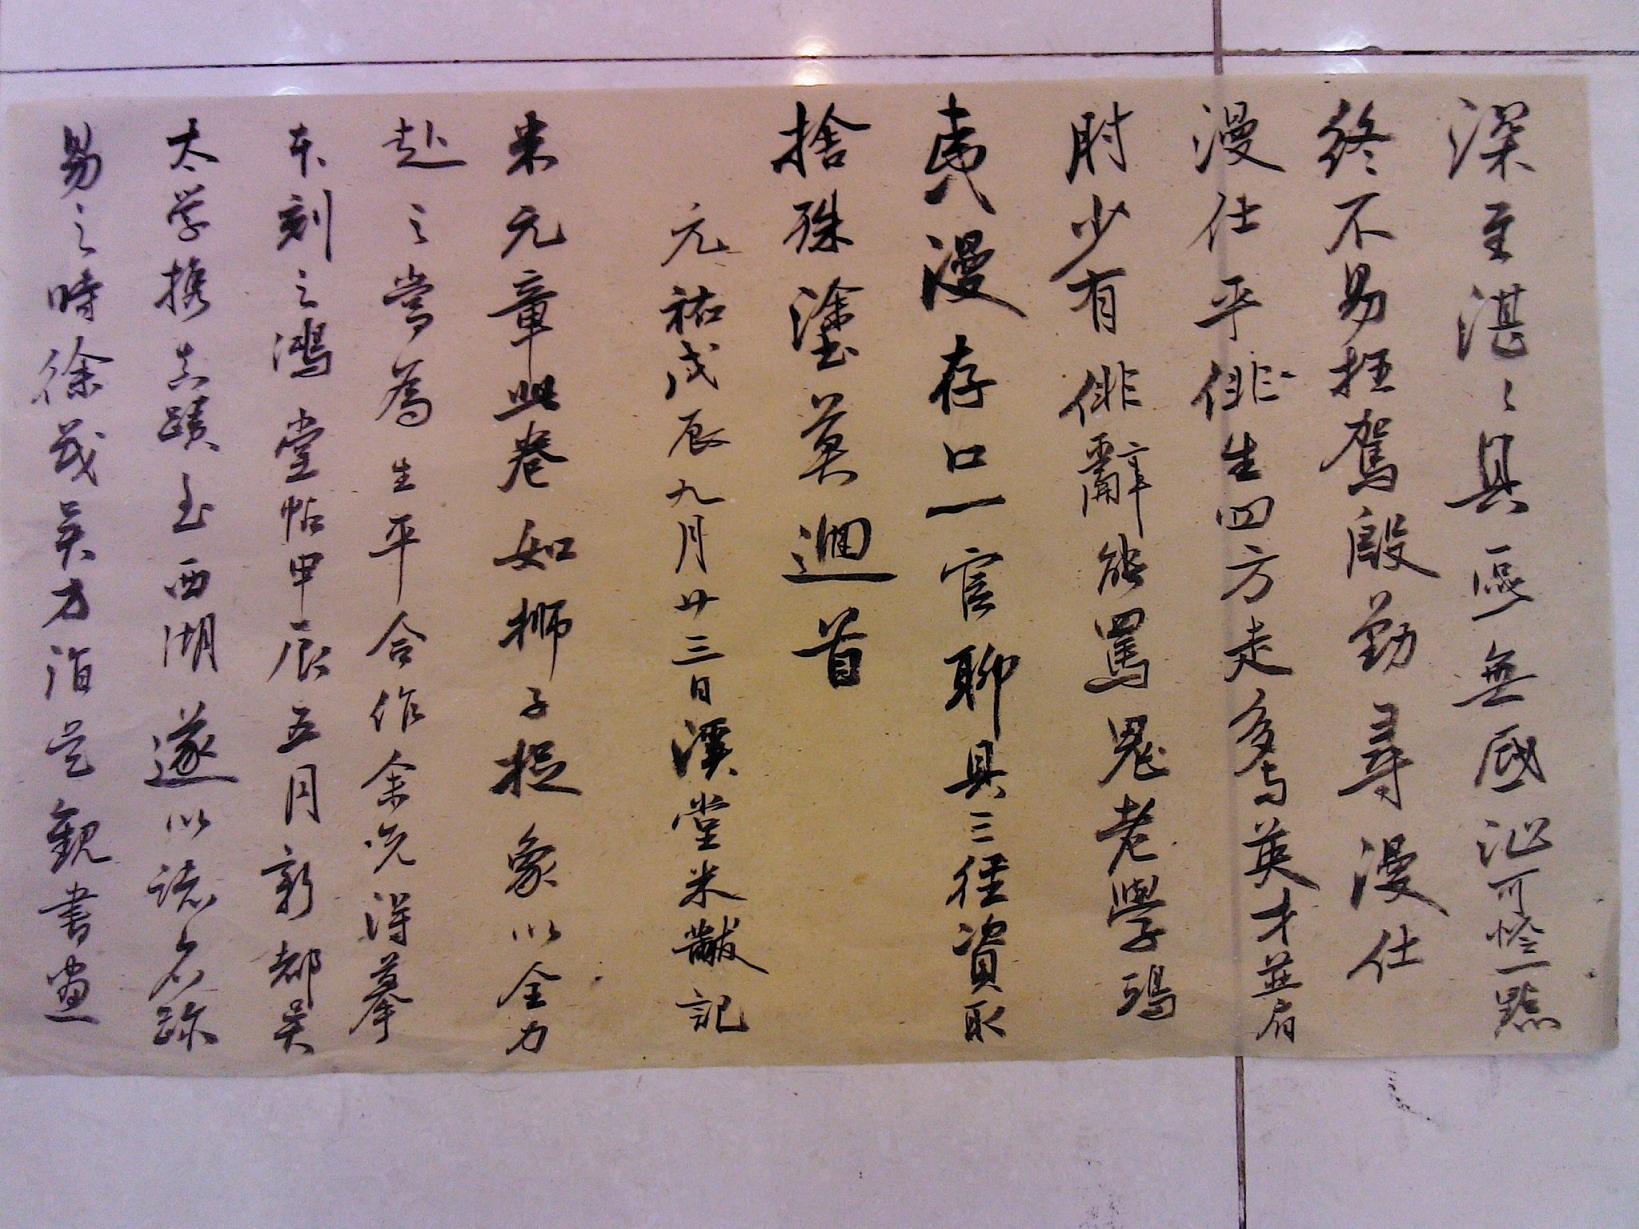 深至湛々具區無底沚可燈一點
終不易抂駕殷勤尋漫仕
漫仕平俳生四方走多与英才並肩
肘少有俳辭能罵鬼老學鴟
夷漫存口一官聊具三徑資取
捨殊塗莫迴首
元祐戊辰九月廿三日溪堂米黻記
米元章此卷如獅子捉象以全力
赴之當為生平合作余先得摹
本刻之鴻堂帖甲辰五月新都吴
太学携真蹟至西湖遂以諸名跡
易之時徐茂吴方詣吴觀書畫